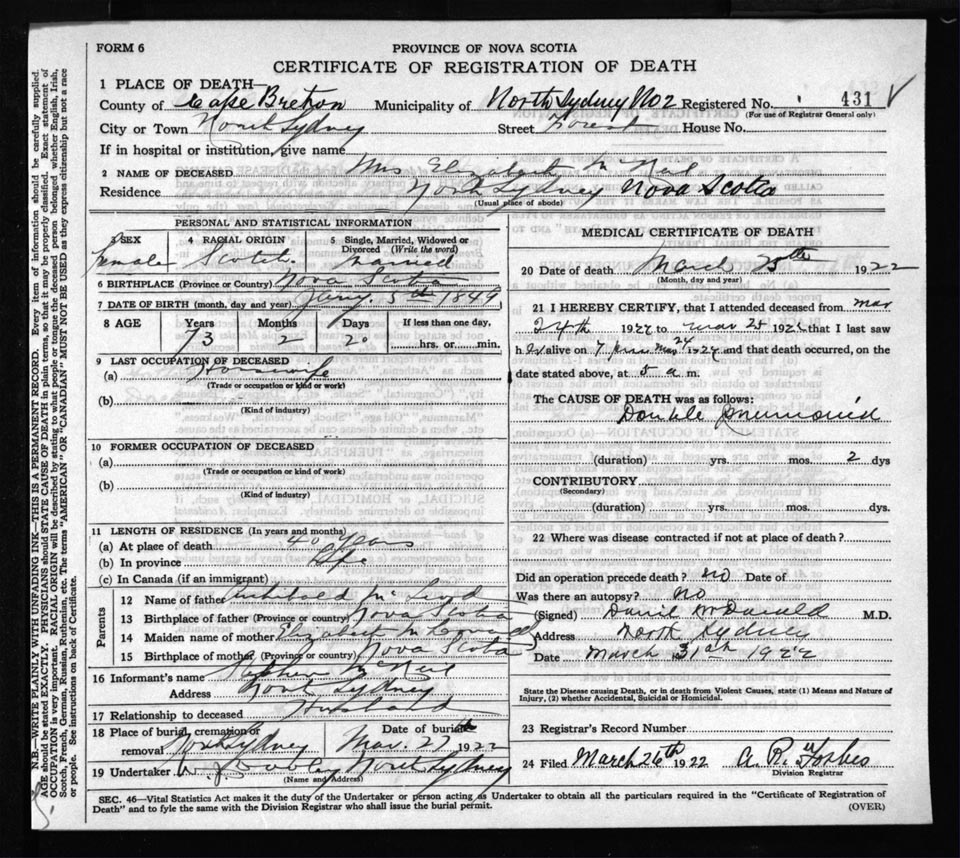 FORM 6
PROVINCE OF NOVA SCOTIA
CERTIFICATE OF REGISTRATION OF DEATH
1 PLACE OF DEATH
County of Cape Breton Municipality of North Sydney No 2 Registered No. 431
(For use of Registrar General only)
City or Town North Sydney Street Forest House No.
If in hospital or institution, give name
2 NAME OF DECEASED Mrs Elizabeth McNeil
Residence North Sydney Nova Scotia
(Usual place of abode)
PERSONAL AND STATISTICAL INFORMATION
3 SEX 4 RACIAL ORIGIN 5 Single, Married, Widowed or Divorced (Write the word)
Female Scotch Married
6 BIRTHPLACE (Province or Country) Nova Scotia
7 DATE OF BIRTH (month, day and year) Jany. 5th 1849
8 AGE Years Months Days If less than one day,
73 2 20 hrs. or min.
9 LAST OCCUPATION OF DECEASED
(a) Housewife
(Trade or occupation or kind or work)
(b)
(Kind of industry)
10 FORMER OCCUPATION OF DECEASED
(a)
(Trade or occupation or kind of work)
(b)
(Kind of industry)
11 LENGTH OF RESIDENCE (In years and months)
(a) At place of death 40 years
(b) In province Life
(c) In Canada (if an immigrant)
Parents
12 Name of father Archibald McLeod
13 Birthplace of father (Province or country) Nova Scotia
14 Maiden name of mother Elizabeth
15 Birthplace of mother (Province or country) Nova Scotia
16 Informant's name Stephen McNeil
Address North Sydney
17 Relationship to deceased Husband
18 Place of burial, cremation or removal North Sydney Date of burial Mar. 27th 1922
19 Undertaker North Sydney
(Name and Address)
MEDICAL CERTIFICATE OF DEATH
20 Date of death March 25th 1922
(Month, day and year)
21 I HEREBY CERTIFY, that I attended deceased from Mar
24th 1922 to Mar 25 1922 that I last saw
her alive on 7 pm Mar 24 1922 and that death occurred, on the
date stated above, at 5 a m.
The CAUSE OF DEATH was as follows:
Double Pneumonia
(duration) yrs. mos. 2 dys
CONTRIBUTORY
(Secondary)
(duration) yrs. mos. dys
22 Where was disease contracted if not at place of death?
Did an operation precede death? No Date of
Was there an autopsy? No
(Signed) Daniel McDonald M.D.
Address North Sydney
Date March 31st 1922
State the Disease causing Death, or in death from Violent Causes, state (1) Means and Nature of
Injury, (2) whether Accidental, Suicidal or Homicidal.
23 Registrar's Record Number
24 Filed March 26th 1922 A. R. Forbes
Division Registrar
SEC. 46—Vital Statistics Act makes it the duty of the Undertaker or person acting as Undertaker to obtain all the particulars required in the "Certificate of Registration of
Death" and to fyle the same with the Division Registrar who shall issue the burial permit.
(OVER)
N.B.—WRITE PLAINLY WITH UNFADING INK—THIS IS A PERMANENT RECORD. Every item of information should be carefully supplied.
AGE should be stated EXACTLY. PHYSICIANS should STATE CAUSE OF DEATH in plain terms, so that it may be properly classified. Exact statement of
OCCUPATION is very important. RACIAL ORIGIN will be described by stating to what people or tongue the deceased person belonged whether English, Irish,
Scotch, French, German, Russian, Ruthenian, etc. The terms "AMERICAN" OR "CANADIAN" MUST NOT BE USED as they express citizenship but not a race
or people. See instructions on back of Certificate.